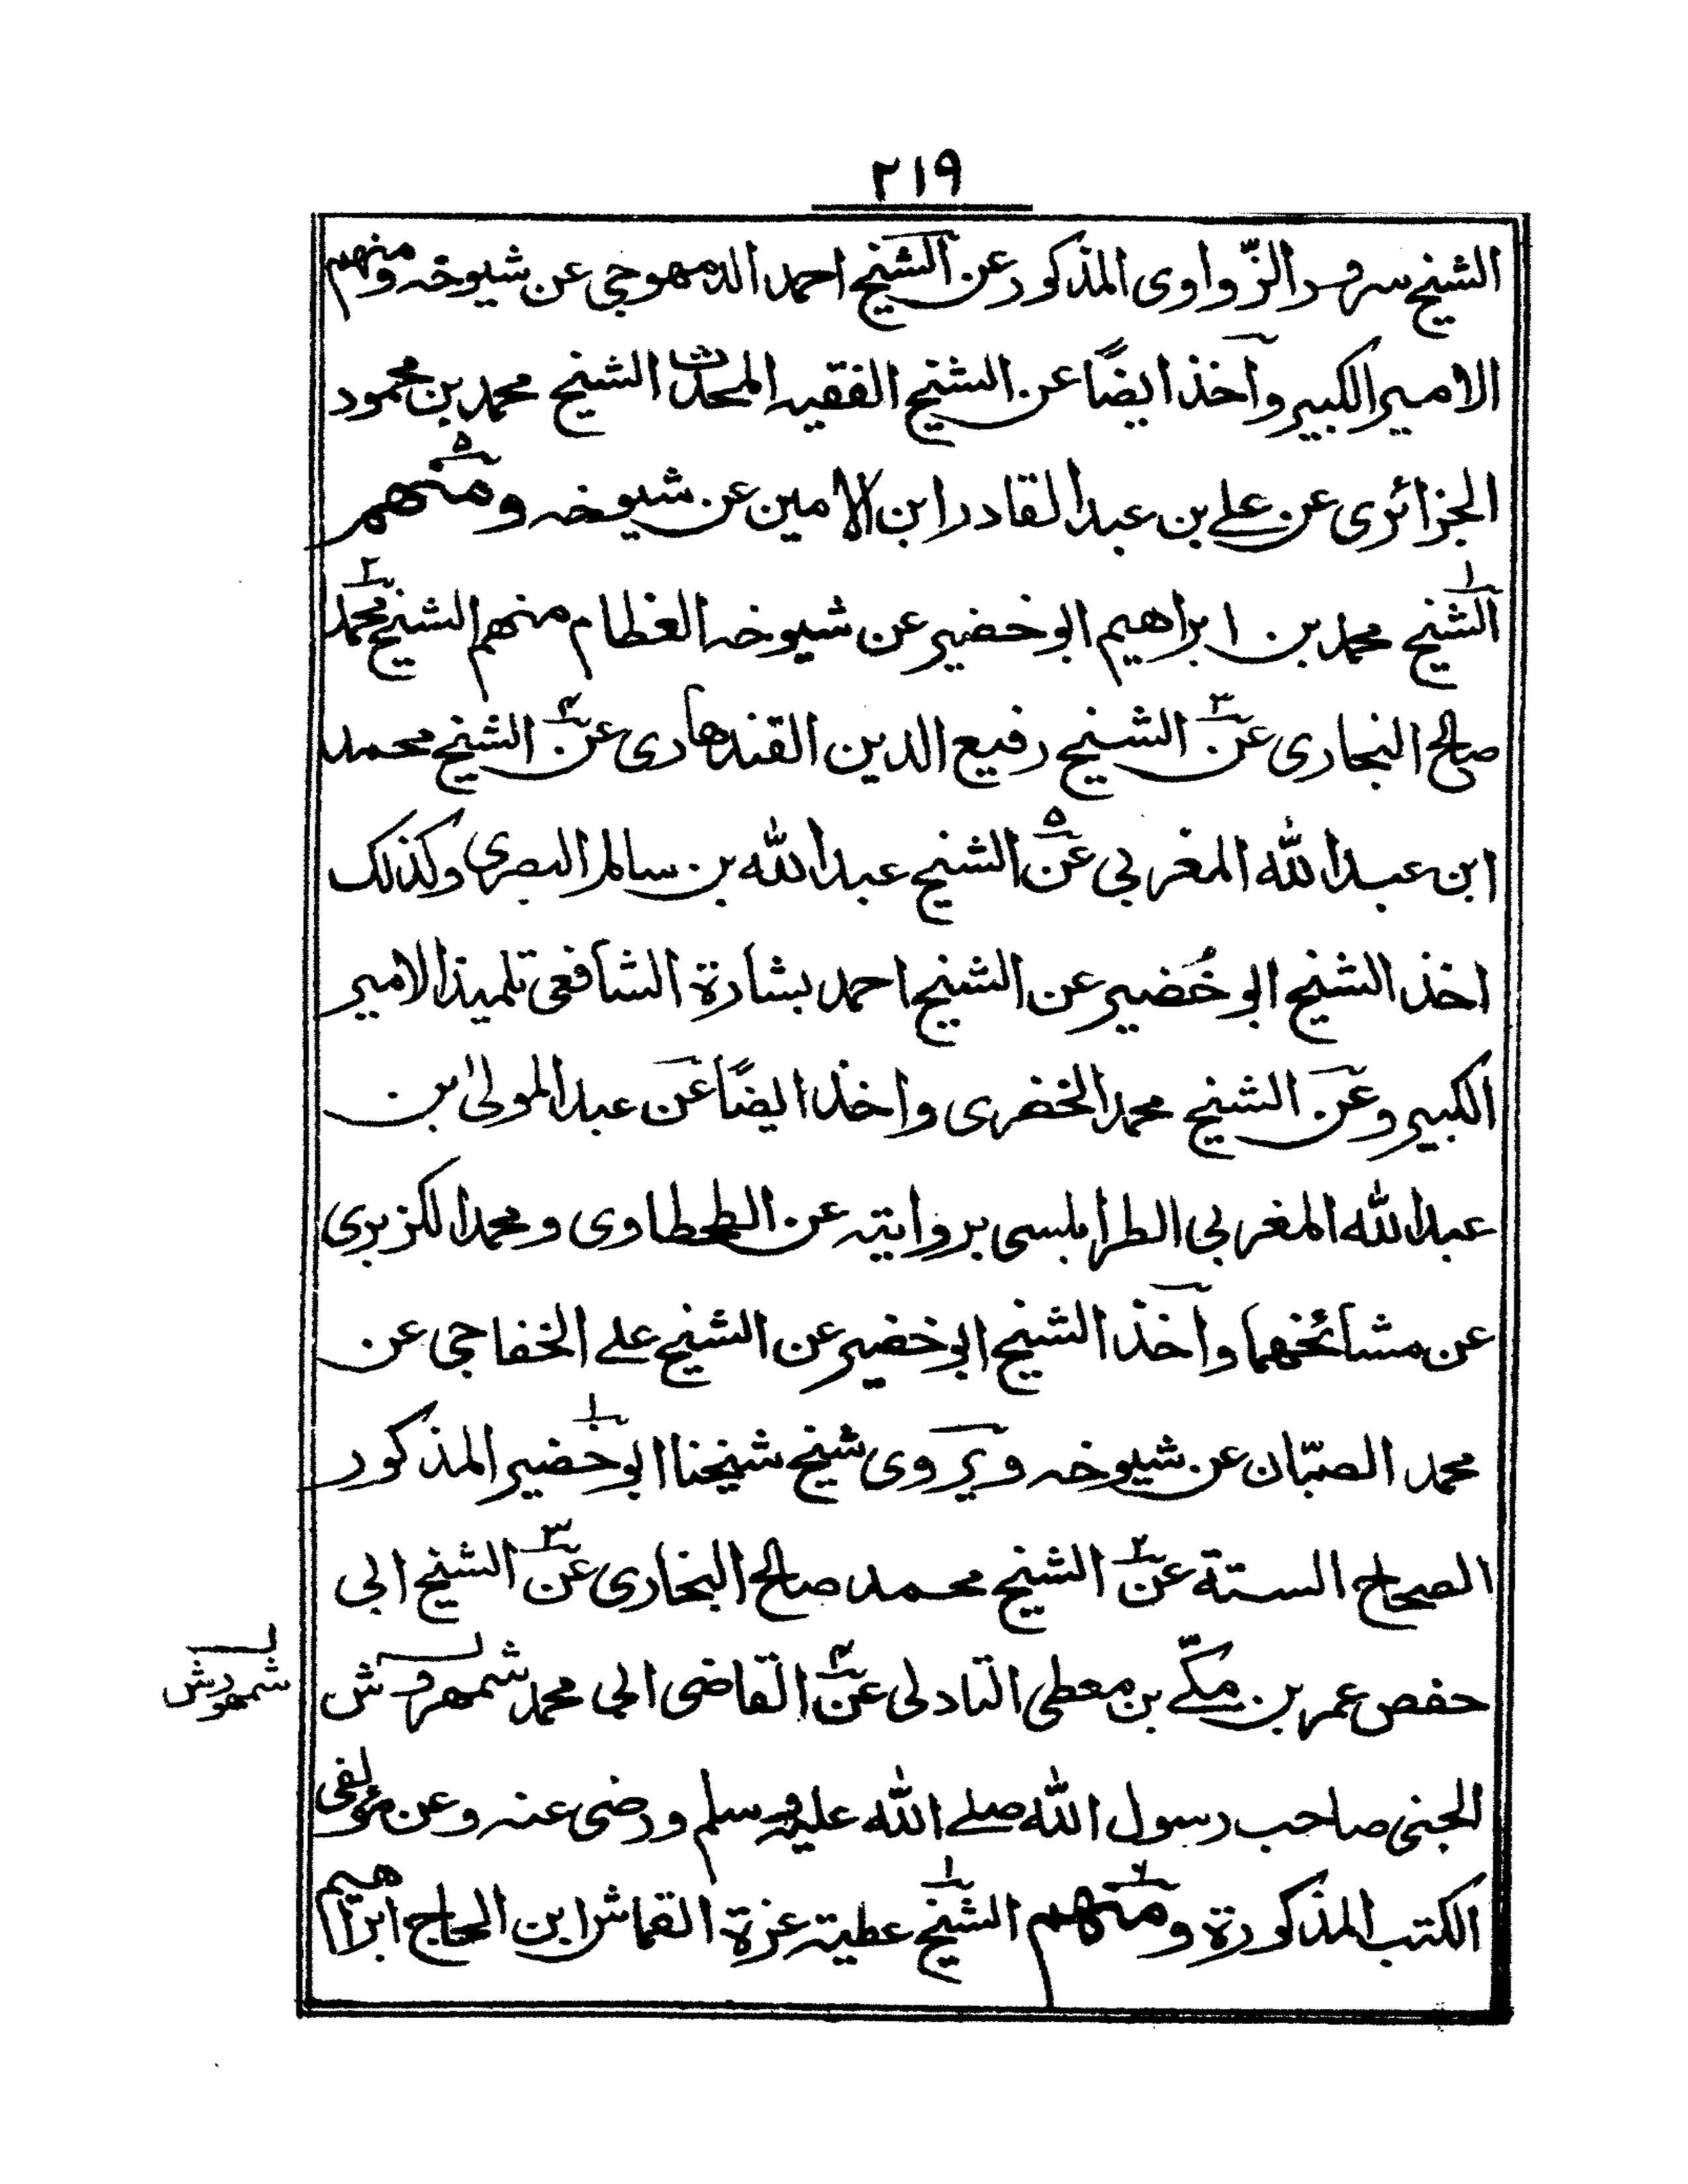 ٢١٩
الشيخ سرور الزّواوى المذكور عن الشيخ احمد الدمهوجى عن شيوخه ومنهم
الامير الكبير وآخذ ايضًا عن الشيخ الفقيه المحدث الشيخ محمد بن محمود
الجزائرى عن على بن عبد القادر ابن الامين عن شيوخه و٥منهم
١الشيخ محمد بن ابراهيم ابو خضير عن شيوخه العظام منهم الشيخ ٢محمد
صالح البخارى ٣عن الشيخ رفيع الدين القندهارى ٤عن الشيخ محمد
ابن عبد الله المغربى ٥عن الشيخ عبد الله بن سالم البصرى وكذلك
اخذ الشيخ ابو خُضير عن الشيخ احمد بشارة الشافعى تلميذ الامير
الكبير وعن الشيخ محمد الخضرى واخذ ايضًا عن عبد المولىٰ بن
عبد الله المغربى الطرابلسى بروايته عن الطحطاوى ومحمد الكزبرى
عن مشائخهما وآخذ الشيخ ابو خضير عن الشيخ على الخفاجى عن
محمد الصبّان عن شيوخه ويروى شيخ شيخنا ١ابو خضير المذكور
الصحاح الستة ٢عن الشيخ محمد صالح البخارى ٣عن الشيخ ابى
حفص عمر بن مكّى بن معطى التادلى ٤عن القاضى ابى محمد شمهروش
شمهورش
الجنى صاحب رسول الله صلى الله عليه وسلم ورضى عنه وعن مؤلفى
الكتب المذكورة و٦منهم ١الشيخ عطية عزة القماش ابن الحاج ابراهيم